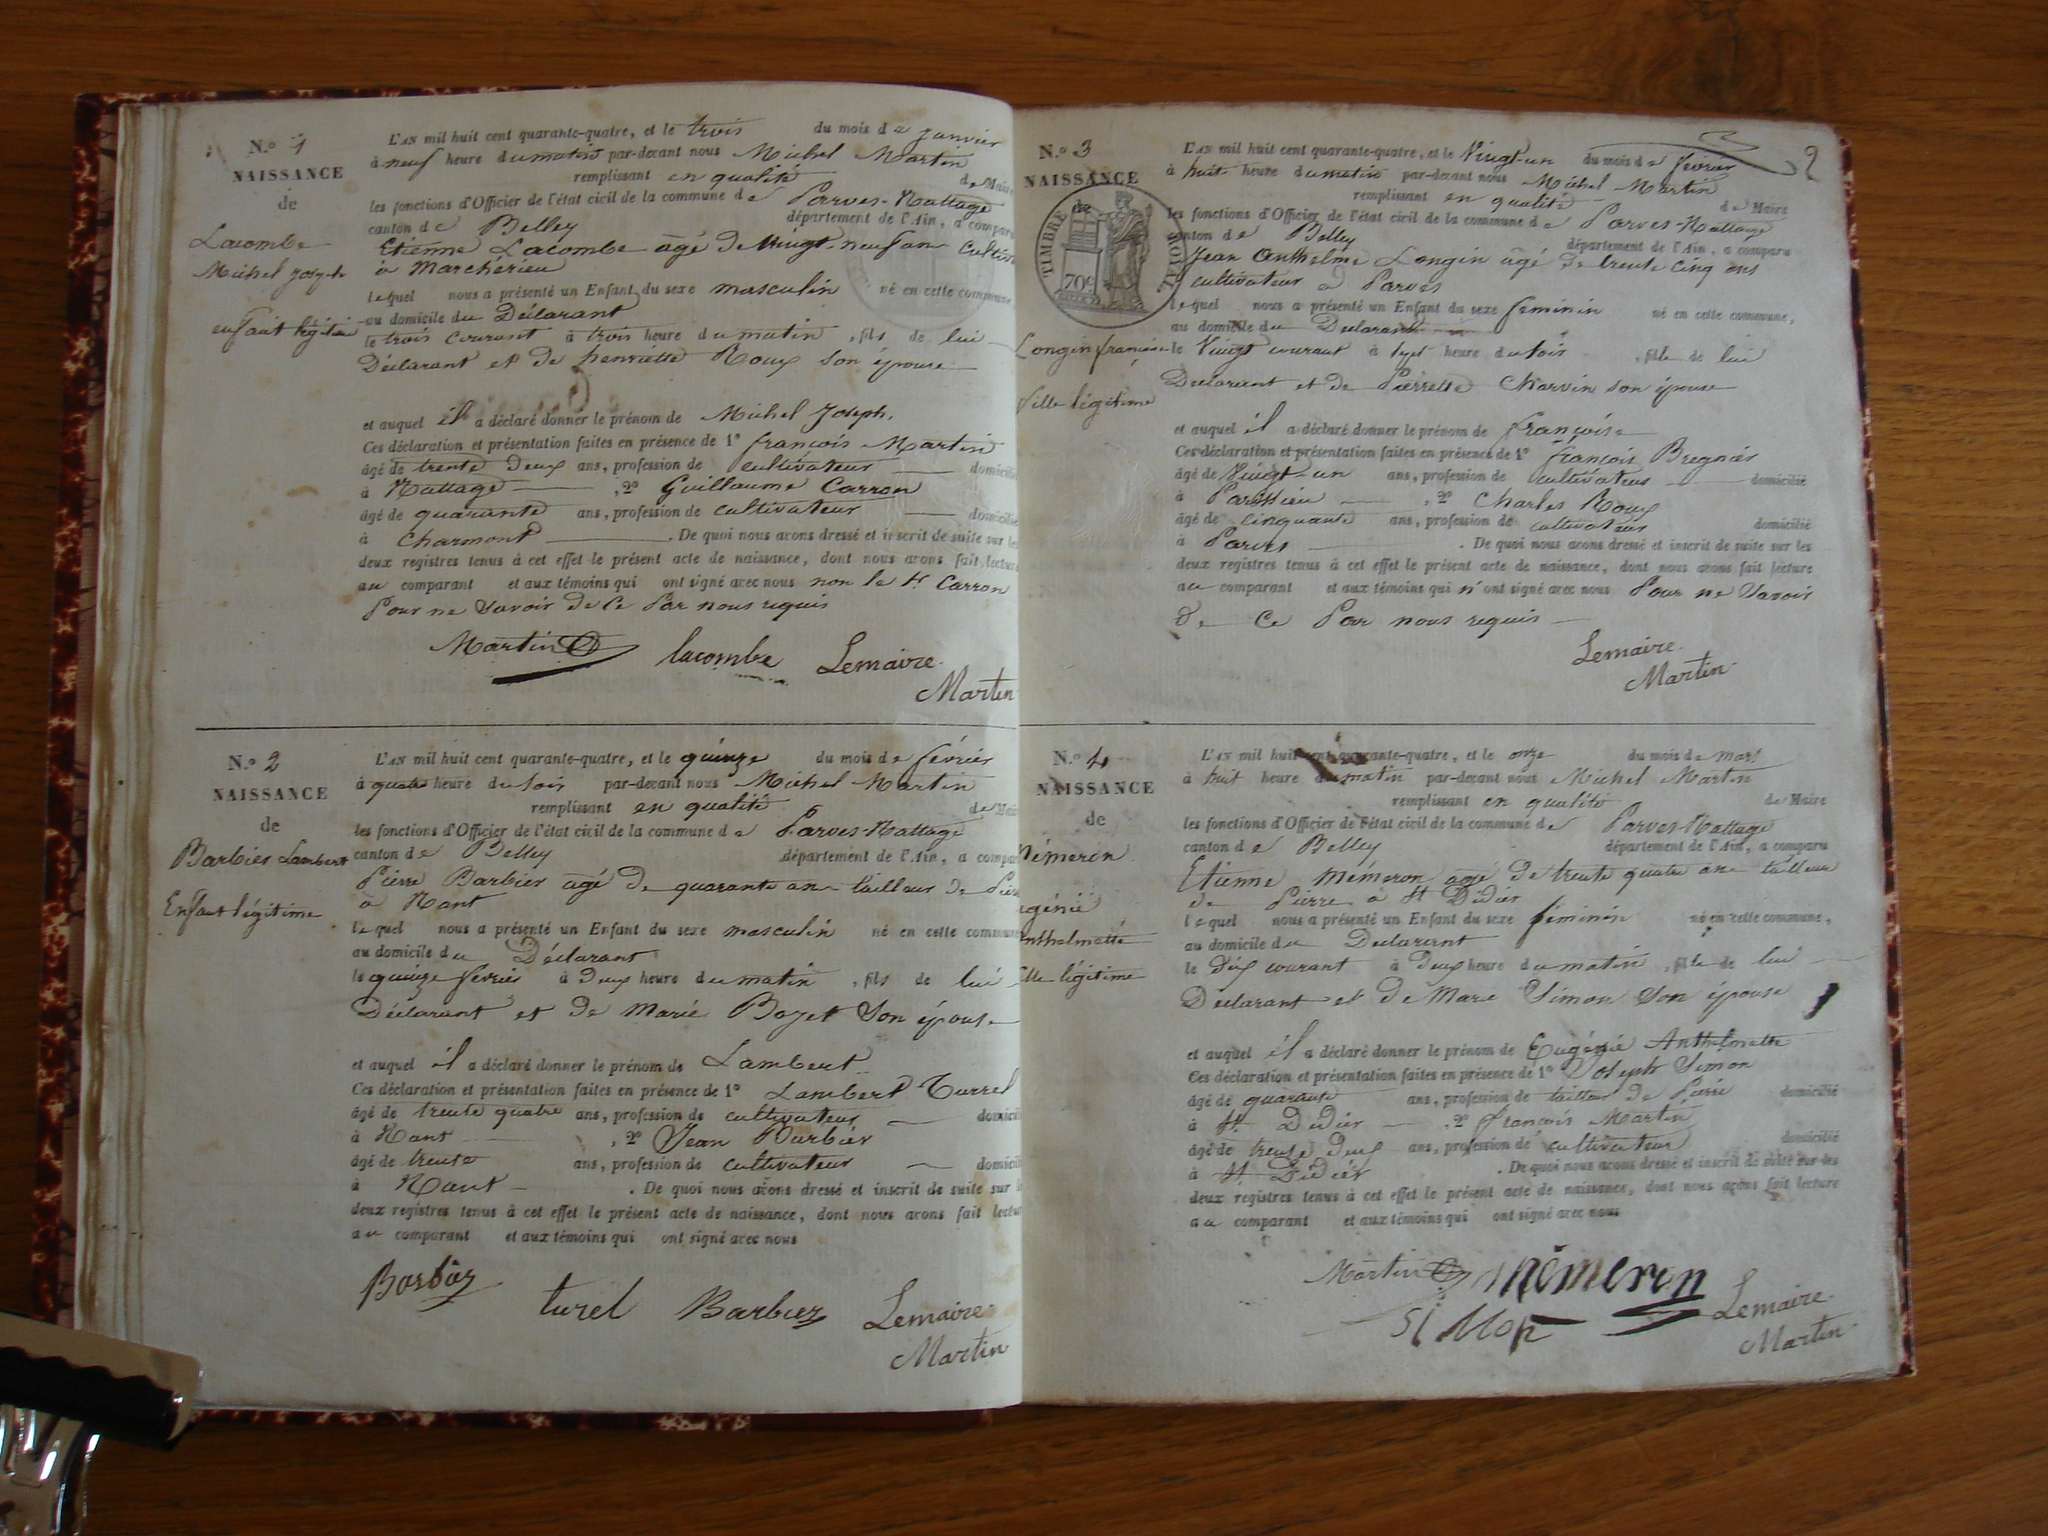 N.o 1
NAISSANCE
de
Lacombe
Michel Joseph
enfant légitime
L'AN mil huit cent quarante-quatre, et le trois du mois de janvier
à neuf heure du matin par-devant nous Michel Martin
remplissant en qualité de Maire
les fonctions d'Officier de l'état civil de la commune de Parves-Nattage
canton de Belley département de l'Ain, a comparu
Etienne Lacombe âgé de Vingt-neuf an
à Marchérieu
lequel nous a présenté un Enfant du sexe masculin né en cette commune
au domicile du Déclarant
le trois courant à trois heure du matin, fils de lui
Déclarant et de henriette Roux son épouse
et auquel il a déclaré donner le prénom de Michel Joseph.
Ces déclaration et présentation faites en présence de 1º françois Martin
âgé de trente deux ans, profession de cultivateur domicilié
à Nattage, 2º Guillaume Carron
âgé de quarante ans, profession de cultivateur domicilié
à Charmont. De quoi nous avons dressé et inscrit de suite sur les
deux registres tenus à cet effet le présent acte de naissance, dont nous avons fait lecture
au comparant et aux témoins qui ont signé avec nous non le sr Carron
Pour ne Savoir de Ce Par nous requis
Martin lacombe Lemaire
Martin
N.o 2
NAISSANCE
de
Barbier Lambert
Enfant légitime
L'AN mil huit cent quarante-quatre, et le quinze du mois de févriér
à quatre heure du soir par-devant nous Michel Martin
remplissant en qualité de Maire
les fonctions d'Officier de l'état civil de la commune de Parves-Nattage
canton de Belley département de l'Ain, a comparu
Pierre Barbier âgé de quarante an tailleur de Pierre
à Nant
lequel nous a présenté un Enfant du sexe masculin né en cette commune
au domicile du Déclarant
le quinze févriér à deux heure du matin, fils de lui
Déclarant et de Marie Bozet Son épouse
et auquel il a déclaré donner le prénom de Lambert
Ces déclaration et présentation faites en présence de 1º Lambert Turrel
âgé de trente quatre ans, profession de cultivateur domicilié
à Nant, 2º Jean Barbier
âgé de trente ans, profession de cultivateur domicilié
à Nant. De quoi nous avons dressé et inscrit de suite sur les
deux registres tenus à cet effet le présent acte de naissance, dont nous avons fait lecture
au comparant et aux témoins qui ont signé avec nous
Barbier turel Barbier Lemaire
Martin
2
N.o 3
NAISSANCE
de
TIMBRE ROYAL
70c
Longin françoise
fille légitime
L'AN mil huit cent quarante-quatre, et le Vingt-un du mois de février
à huit heure du matin par-devant nous Michel Martin
remplissant en qualité de Maire
les fonctions d'Officier de l'état civil de la commune de Parves-Nattage
canton de Belley département de l'Ain, a comparu
Jean Anthelme Longin âgé de trente cinq ans
cultivateur à Parves
lequel nous a présenté un Enfant du sexe feminin né en cette commune,
au domicile du Declarant
le Vingt courant à sept heure du soir, fille de lui
Declarant et de Pierrette Charvin son épouse
et auquel il a déclaré donner le prénom de françoise
Ces déclaration et présentation faites en présence de 1º françois
âgé de Vingt-un ans, profession de cultivateur domicilié
à, 2º Charles Roux
âgé de cinquante ans, profession de cultivateur domicilié
à Parves. De quoi nous avons dressé et inscrit de suite sur les
deux registres tenus à cet effet le présent acte de naissance, dont nous avons fait lecture
au comparant et aux témoins qui n'ont signé avec nous Pour ne Savoir
de Ce Par nous requis
Lemaire
Martin
N.o 4
NAISSANCE
de
Mémeron
Eugénie
Anthelmette
fille légitime
L'AN mil huit cent quarante-quatre, et le onze du mois de mars
à huit heure du matin par-devant nous Michel Martin
remplissant en qualité de Maire
les fonctions d'Officier de l'état civil de la commune de Parves-Nattage
canton de Belley département de l'Ain, a comparu
Etienne Mémeron âgé de trente quatre an tailleur
de Pierre à St Didier
lequel nous a présenté un Enfant du sexe féminin né en cette commune,
au domicile du Declarant
le dix courant à deux heure du matin, fille de lui
Declarant et de Marie Simon Son épouse
et auquel il a déclaré donner le prénom de Eugénie Anthelmette
Ces déclaration et présentation faites en présence de 1º Joseph Simon
âgé de quarante ans, profession de tailleur de Pierre domicilié
à St Didier, 2º françois Martin
âgé de trente deux ans, profession de cultivateur domicilié
à St Didier. De quoi nous avons dressé et inscrit de suite sur les
deux registres tenus à cet effet le présent acte de naissance, dont nous avons fait lecture
au comparant et aux témoins qui ont signé avec nous
Martin mémeron Lemaire
Martin